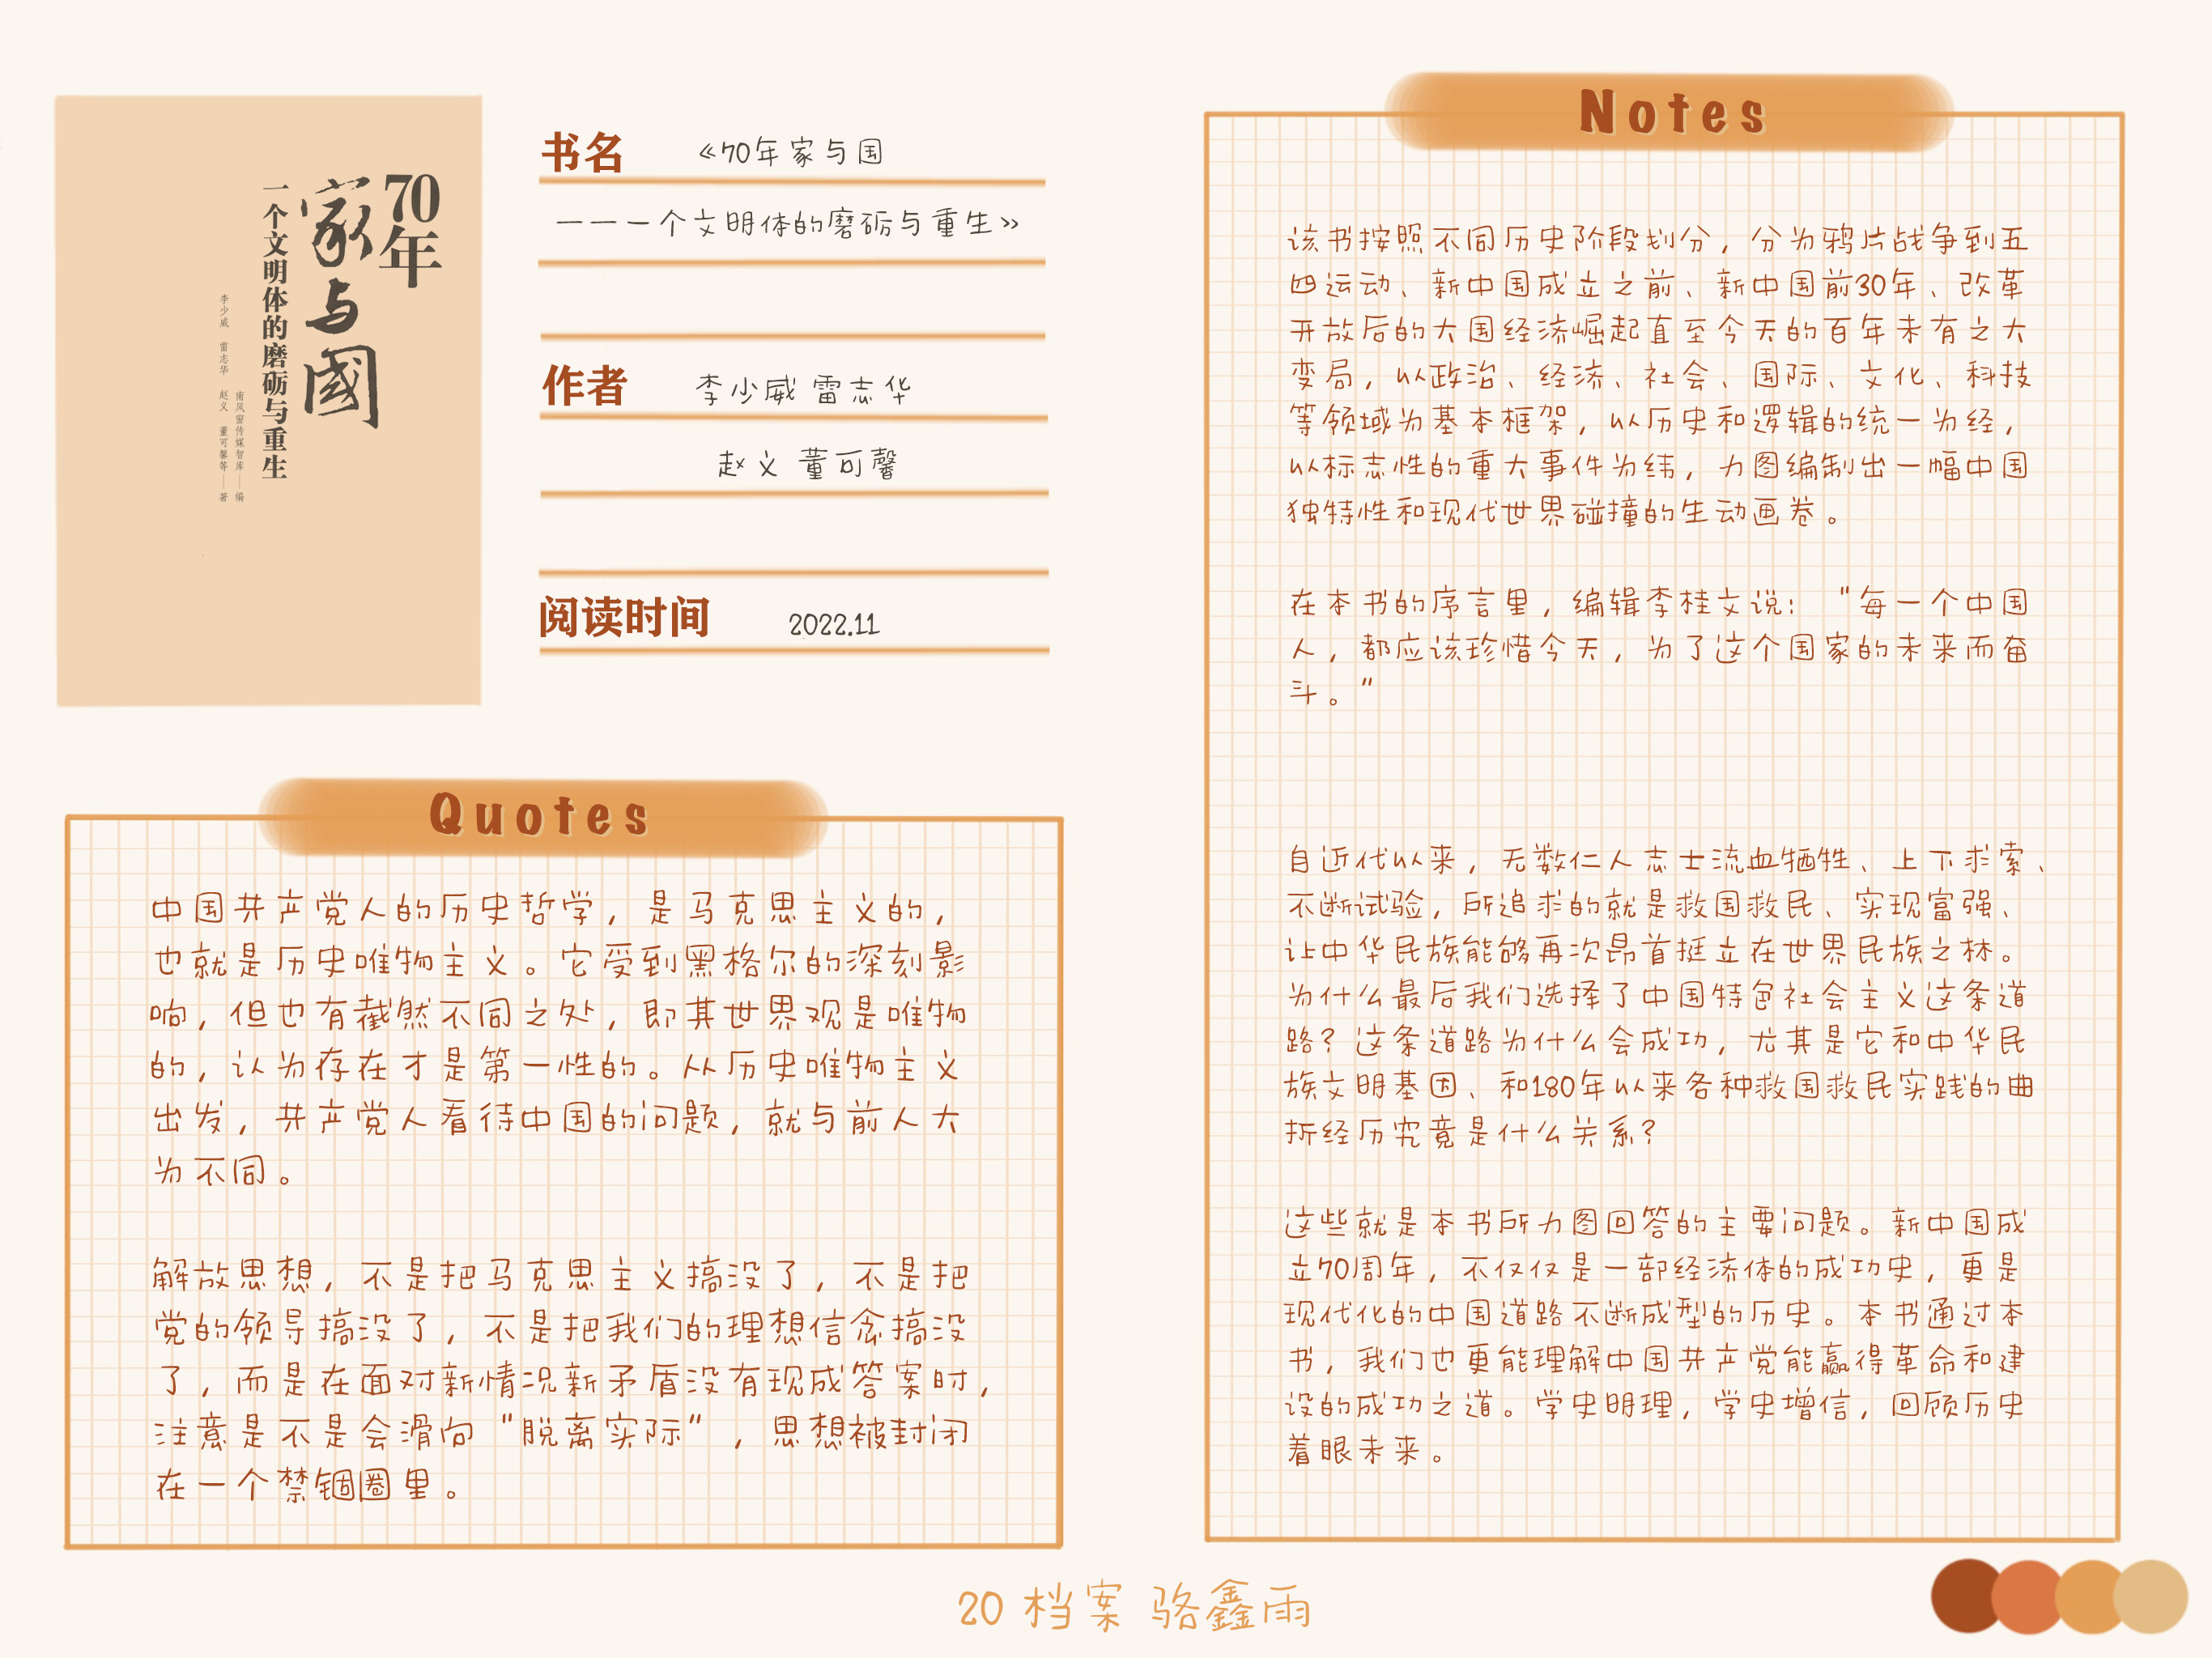 70年
家与國
一个文明体的磨砺与重生
南风窗传媒智库——编
李少威 雷志华 赵义 董可馨等——著
书名 《70年家与国
——一个文明体的磨砺与重生》
作者 李少威 雷志华
赵义 董可馨
阅读时间 2022.11
Quotes
中国共产党人的历史哲学，是马克思主义的，
也就是历史唯物主义。它受到黑格尔的深刻影
响，但也有截然不同之处，即其世界观是唯物
的，认为存在才是第一性的。从历史唯物主义
出发，共产党人看待中国的问题，就与前人大
为不同。
解放思想，不是把马克思主义搞没了，不是把
党的领导搞没了，不是把我们的理想信念搞没
了，而是在面对新情况新矛盾没有现成答案时，
注意是不是会滑向"脱离实际"，思想被封闭
在一个禁锢圈里。
Notes
该书按照不同历史阶段划分，分为鸦片战争到五
四运动、新中国成立之前、新中国前30年、改革
开放后的大国经济崛起直至今天的百年未有之大
变局，以政治、经济、社会、国际、文化、科技
等领域为基本框架，以历史和逻辑的统一为经，
以标志性的重大事件为纬，力图编制出一幅中国
独特性和现代世界碰撞的生动画卷。
在本书的序言里，编辑李桂文说："每一个中国
人，都应该珍惜今天，为了这个国家的未来而奋
斗。"
自近代以来，无数仁人志士流血牺牲、上下求索、
不断试验，所追求的就是救国救民、实现富强、
让中华民族能够再次昂首挺立在世界民族之林。
为什么最后我们选择了中国特色社会主义这条道
路？这条道路为什么会成功，尤其是它和中华民
族文明基因、和180年以来各种救国救民实践的曲
折经历究竟是什么关系？
这些就是本书所力图回答的主要问题。新中国成
立70周年，不仅仅是一部经济体的成功史，更是
现代化的中国道路不断成型的历史。本书通过本
书，我们也更能理解中国共产党能赢得革命和建
设的成功之道。学史明理，学史增信，回顾历史
着眼未来。
20 档案 骆鑫雨